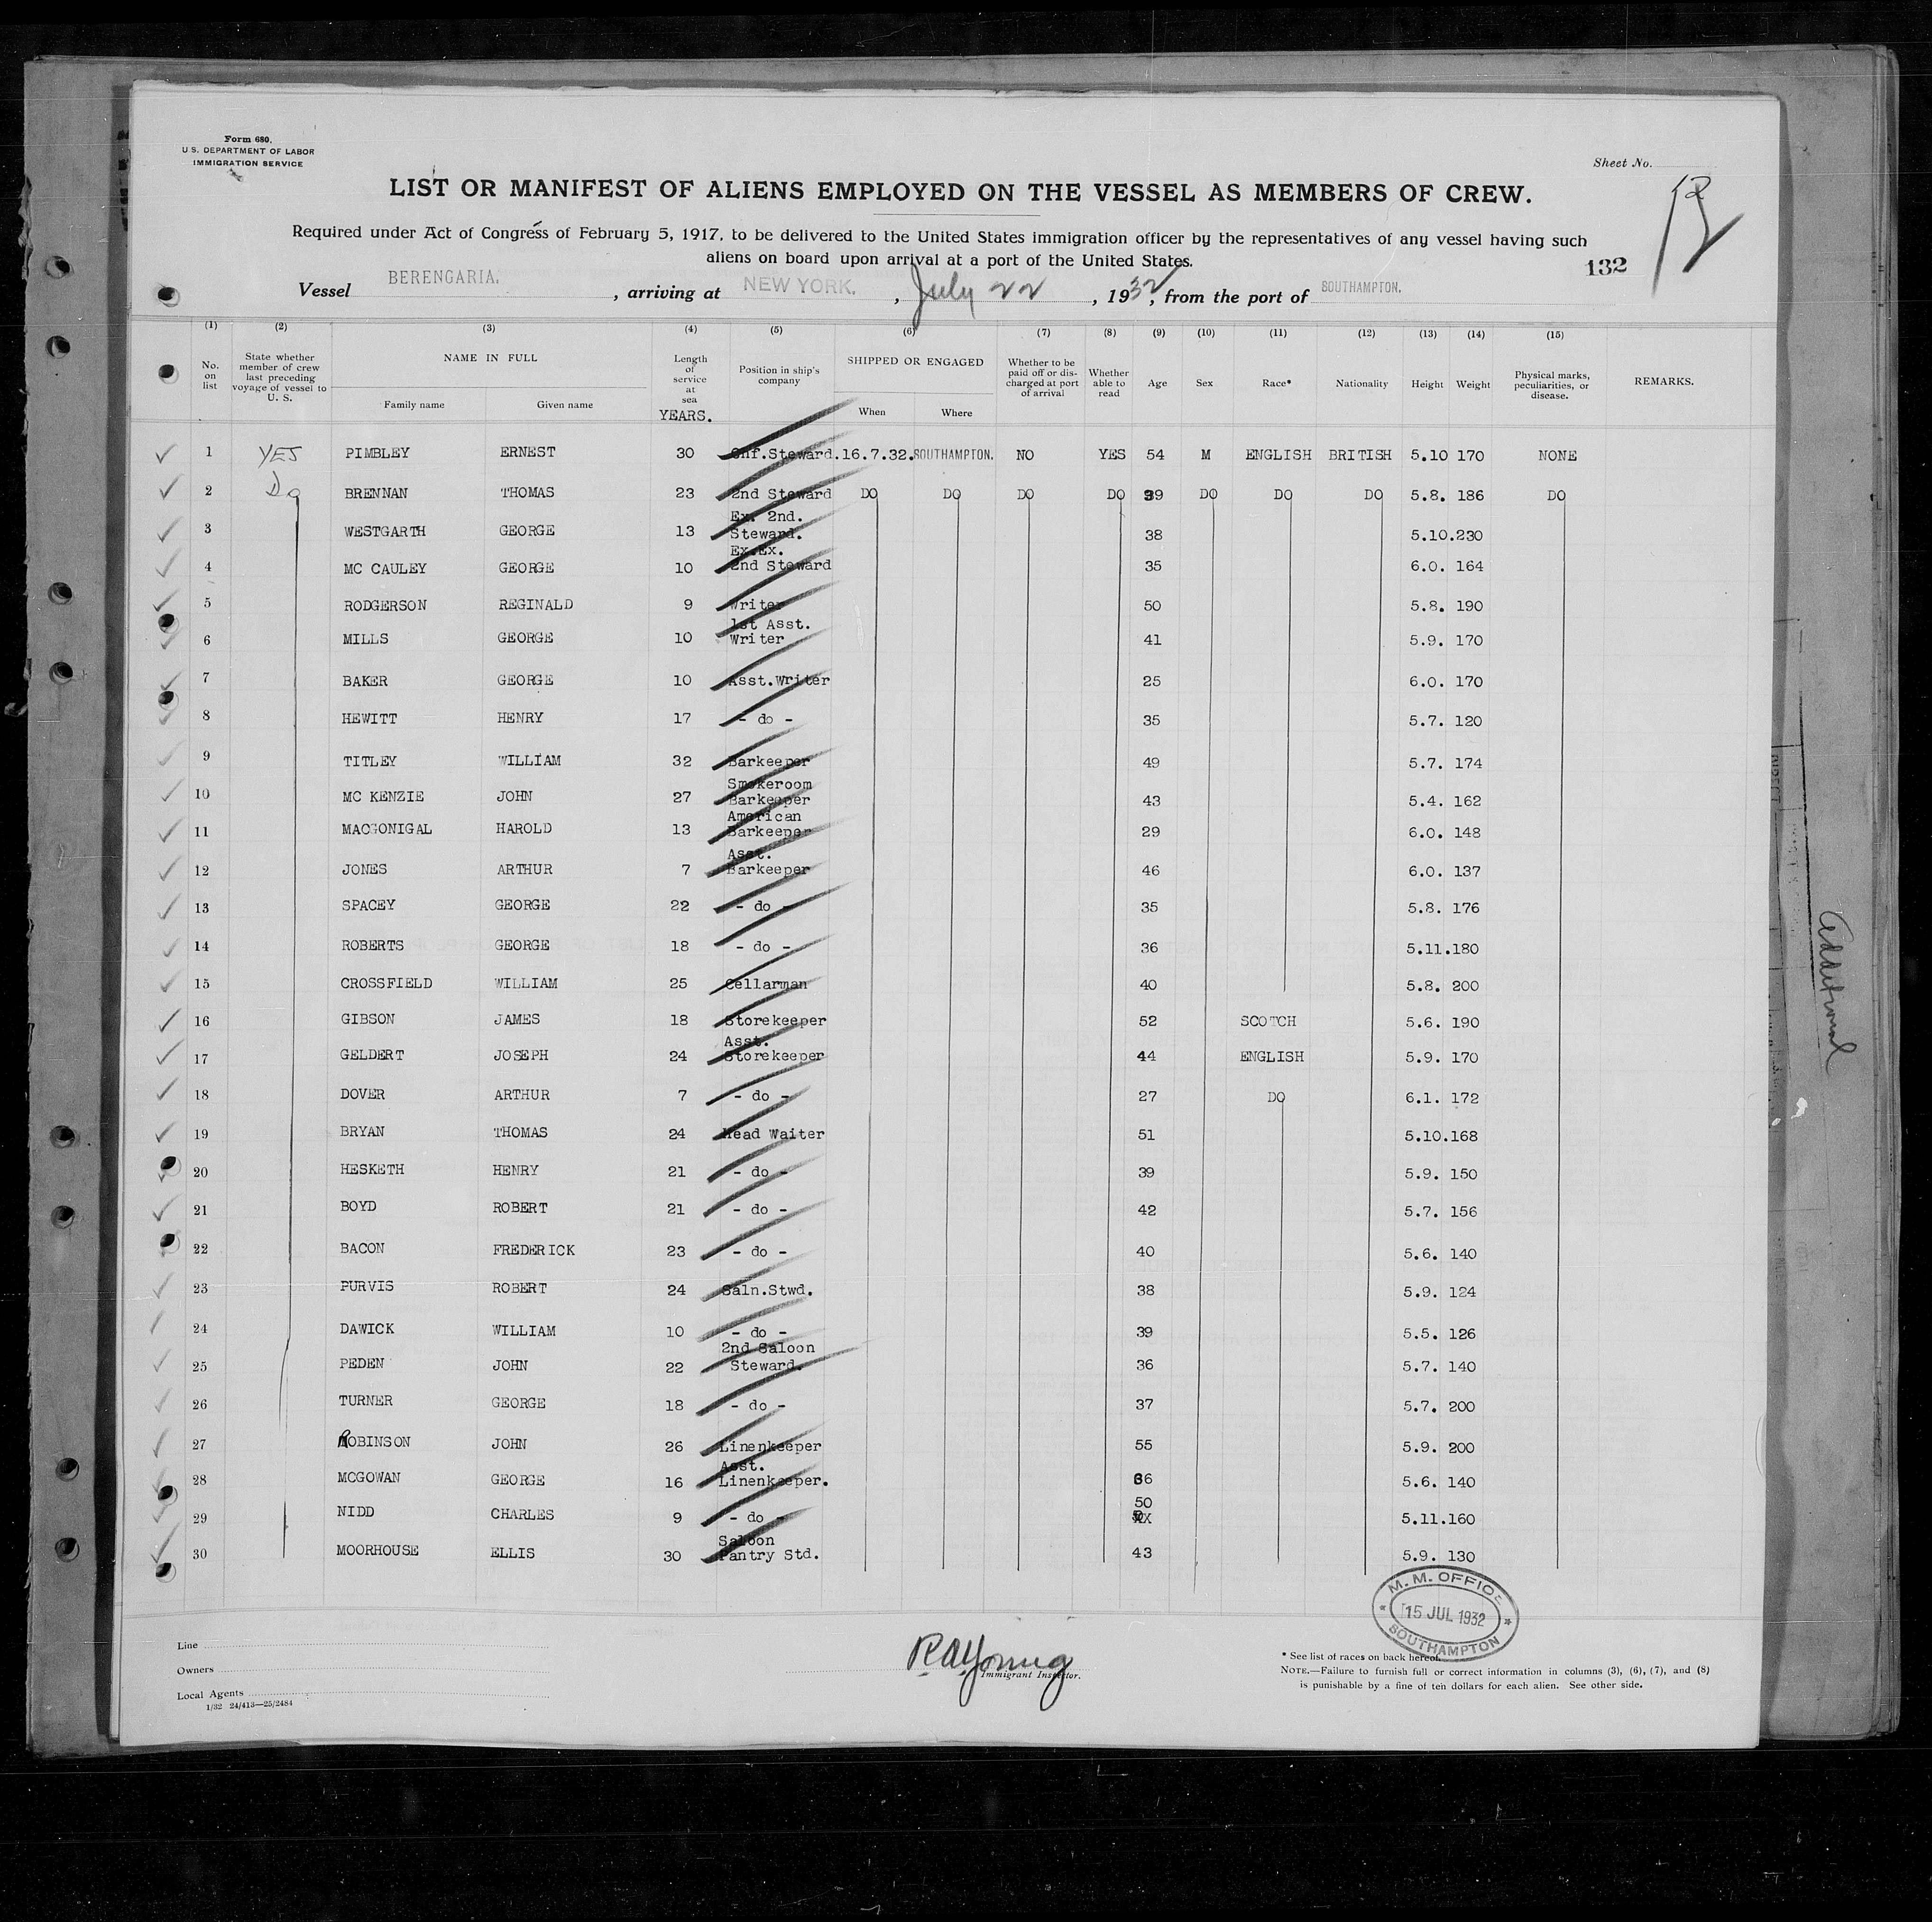 Form 680.
U.S. DEPARTMENT OF LABOR
IMMIGRATION SERVICE
Sheet No.
LIST OR MANIFEST OF ALIENS EMPLOYED ON THE VESSEL AS MEMBERS OF CREW.
Required under Act of Congress of February 5, 1917, to be delivered to the United States immigration officer by the representatives of any vessel having such
aliens on board upon arrival at a port of the United States.
132
Vessel BERENGARIA. , arriving at NEW YORK. , July 22 , 1932, from the port of SOUTHAMPTON.
(1) (2) (3) (4) (5) (6) (7) (8) (9) (10) (11) (12) (13) (14) (15)
No. on list
State whether member of crew last preceding voyage of vessel to U. S.
NAME IN FULL
Family name Given name
Length of service at sea YEARS.
Position in ship's company
SHIPPED OR ENGAGED
When Where
Whether to be paid off or discharged at port of arrival
Whether able to read
Age Sex Race* Nationality Height Weight
Physical marks, peculiarities, or disease.
REMARKS.
1 YES PIMBLEY ERNEST 30 Chf.Steward. 16.7.32. SOUTHAMPTON. NO YES 54 M ENGLISH BRITISH 5.10 170 NONE
2 Do BRENNAN THOMAS 23 2nd Steward DO DO DO DO 39 DO DO DO 5.8. 186 DO
3 WESTGARTH GEORGE 13 Ex. 2nd. Steward. 38 5.10. 230
4 MC CAULEY GEORGE 10 Ex.Ex. 2nd Steward 35 6.0. 164
5 RODGERSON REGINALD 9 Writer 50 5.8. 190
6 MILLS GEORGE 10 1st Asst. Writer 41 5.9. 170
7 BAKER GEORGE 10 Asst.Writer 25 6.0. 170
8 HEWITT HENRY 17 - do - 35 5.7. 120
9 TITLEY WILLIAM 32 Barkeeper 49 5.7. 174
10 MC KENZIE JOHN 27 Smokeroom Barkeeper 43 5.4. 162
11 MACGONIGAL HAROLD 13 American Barkeeper 29 6.0. 148
12 JONES ARTHUR 7 Asst. Barkeeper 46 6.0. 137
13 SPACEY GEORGE 22 - do - 35 5.8. 176
14 ROBERTS GEORGE 18 - do - 36 5.11. 180
15 CROSSFIELD WILLIAM 25 Cellarman 40 5.8. 200
16 GIBSON JAMES 18 Storekeeper 52 SCOTCH 5.6. 190
17 GELDERT JOSEPH 24 Asst. Storekeeper 44 ENGLISH 5.9. 170
18 DOVER ARTHUR 7 - do - 27 DO 6.1. 172
19 BRYAN THOMAS 24 Head Waiter 51 5.10. 168
20 HESKETH HENRY 21 - do - 39 5.9. 150
21 BOYD ROBERT 21 - do - 42 5.7. 156
22 BACON FREDERICK 23 - do - 40 5.6. 140
23 PURVIS ROBERT 24 Saln.Stwd. 38 5.9. 124
24 DAWICK WILLIAM 10 - do - 39 5.5. 126
25 PEDEN JOHN 22 2nd Saloon Steward. 36 5.7. 140
26 TURNER GEORGE 18 - do - 37 5.7. 200
27 ROBINSON JOHN 26 Linenkeeper 55 5.9. 200
28 MCGOWAN GEORGE 16 Asst. Linenkeeper. 36 5.6. 140
29 NIDD CHARLES 9 - do - 50 5.11. 160
30 MOORHOUSE ELLIS 30 Saloon Pantry Std. 43 5.9. 130
M. M. OFFICE
15 JUL 1932
SOUTHAMPTON
Line
Owners
Local Agents
1/32 24/413—25/2484
R.A. Young
Immigrant Inspector.
* See list of races on back hereof.
NOTE.—Failure to furnish full or correct information in columns (3), (6), (7), and (8)
is punishable by a fine of ten dollars for each alien. See other side.
Additional